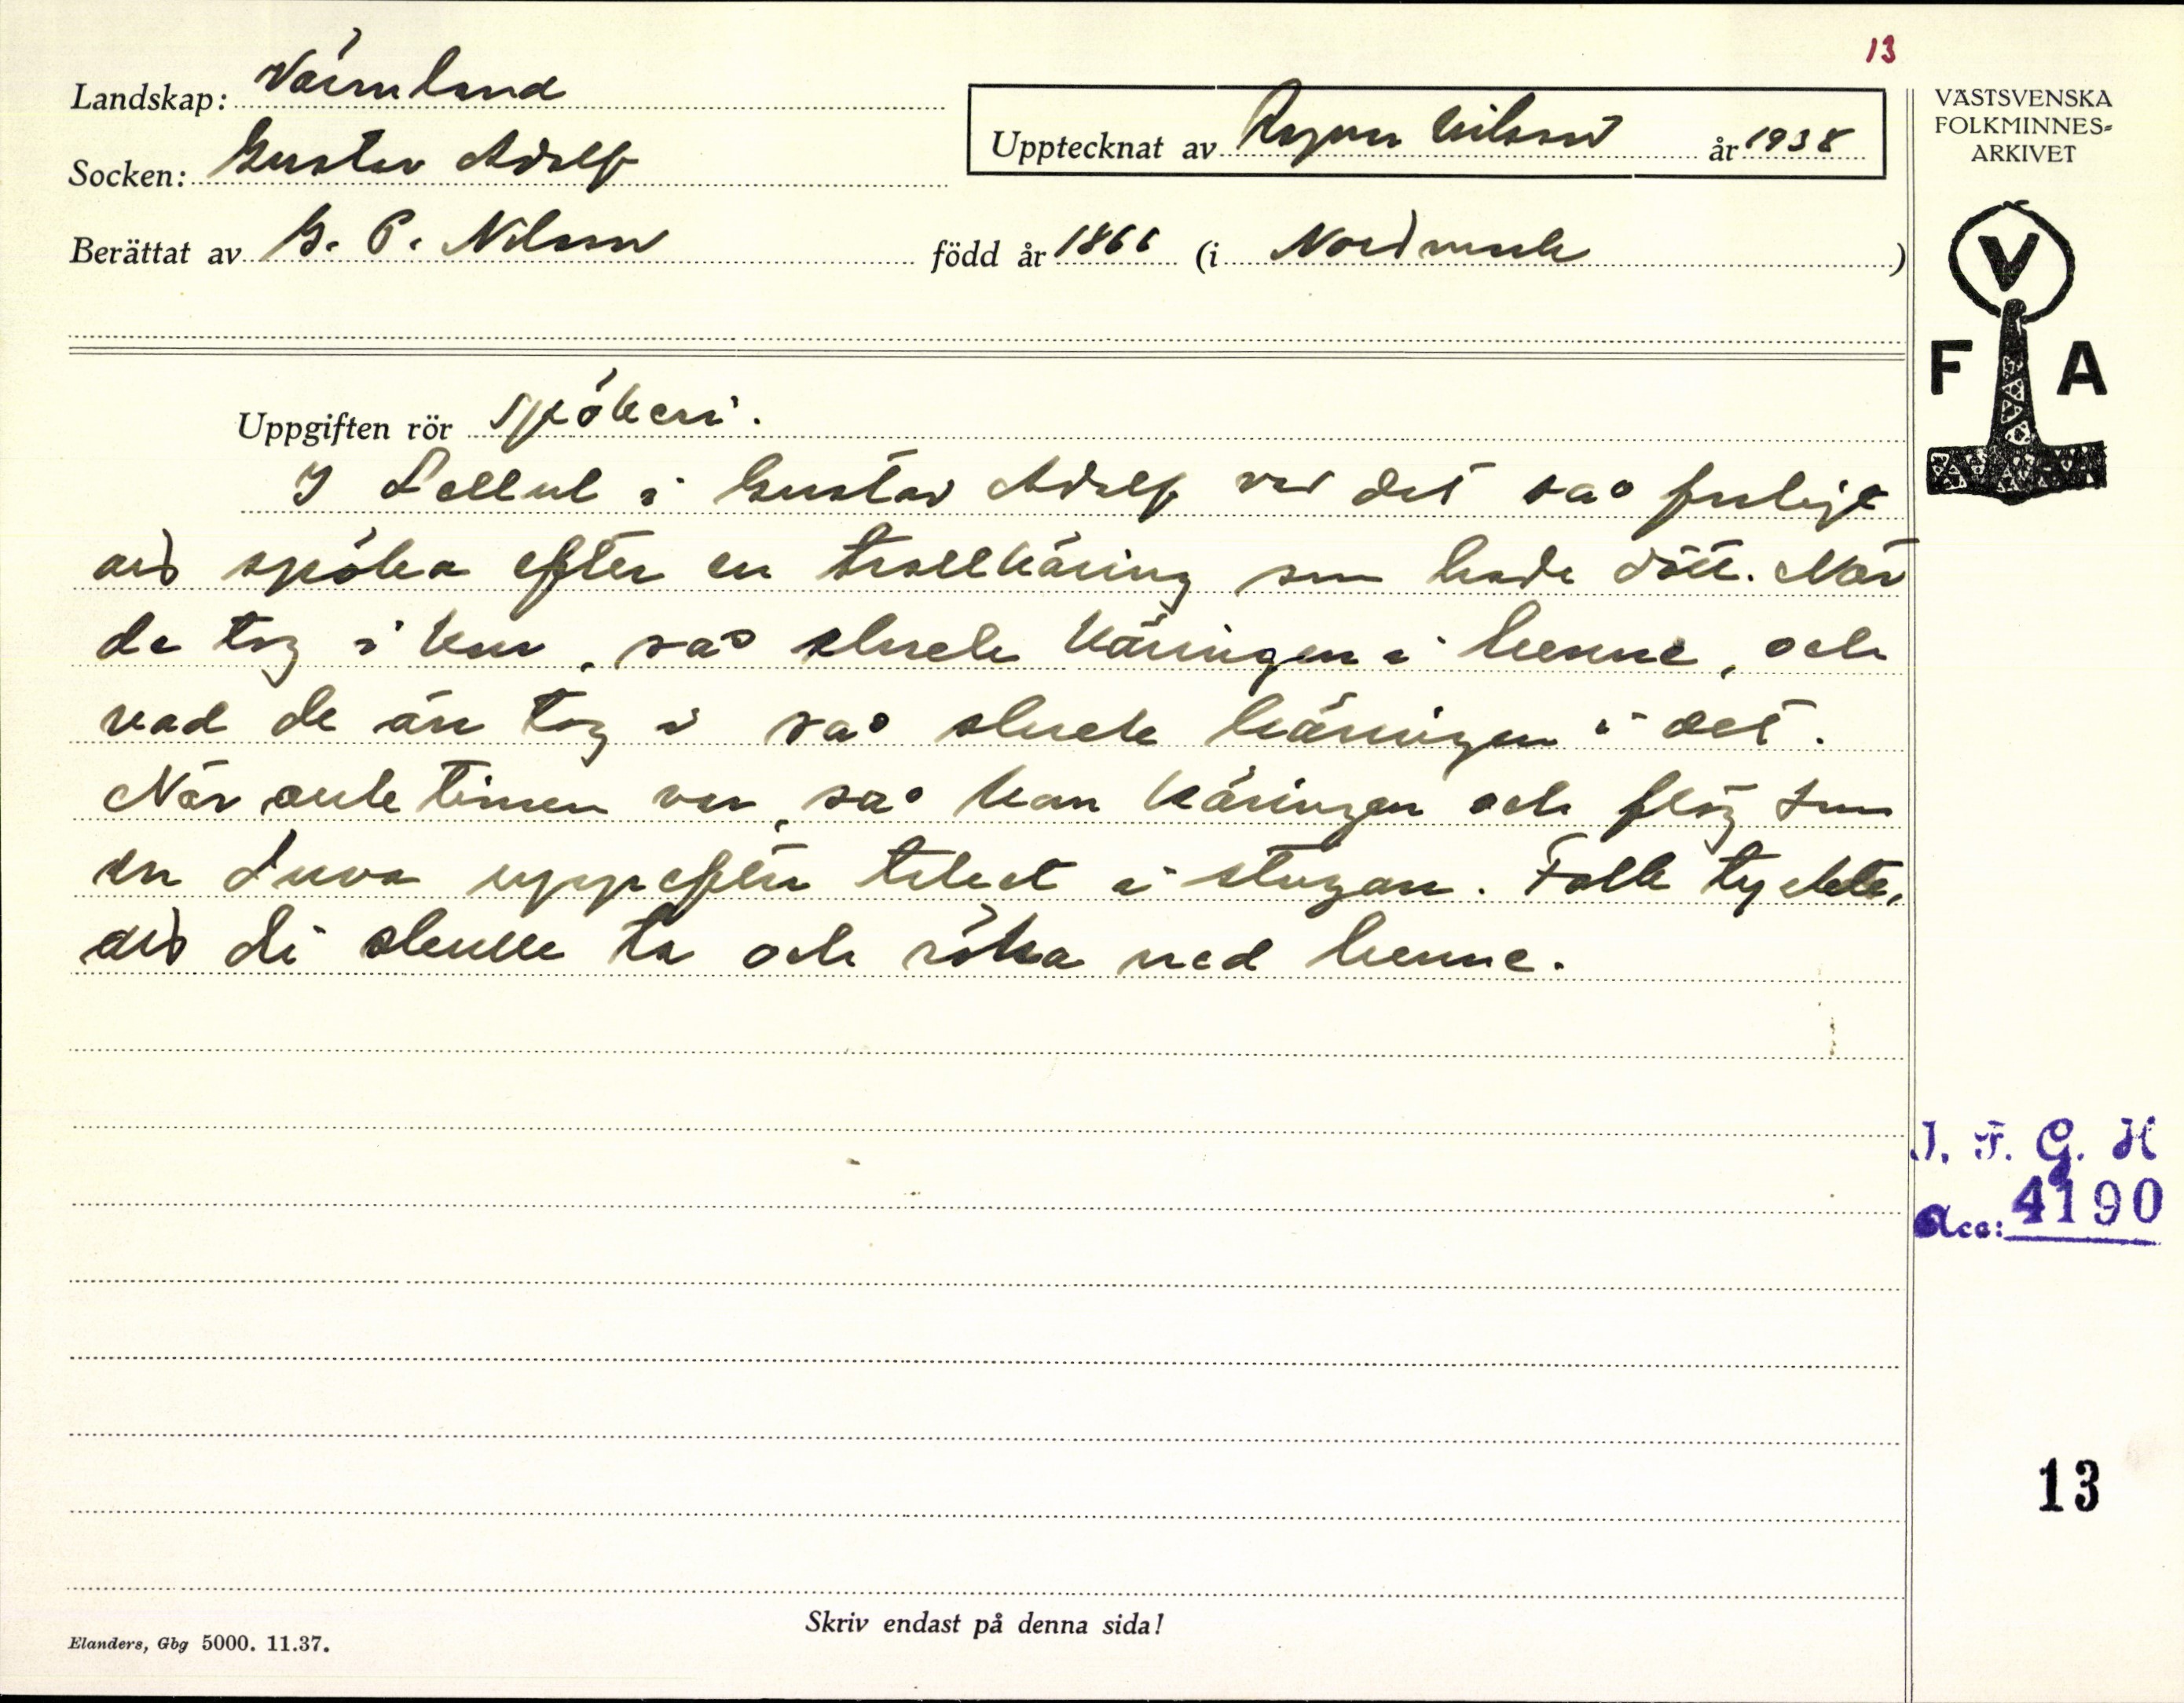 13
Landskap: Värmland
Socken: Gustav Adolf
Upptecknat av Ragnar Nilsson år 1938
Berättat av G. P. Nilsson född år 1866 (i Nordmark)
VÄSTSVENSKA
FOLKMINNES=
ARKIVET
V
F A
Uppgiften rör Spökeri.
I i Gustav Adolf var det så fuligt
med spöka efter en trollkäring som hade dött. När
de tog i kun, så skrek käringen i henne, och
vad de än tog i så skrek käringen i det.
När timen var, så kom käringen och flög som
en duva uppefter taket i stugan. Folk tyckte,
att di skulle ta och röka ned henne.
I. F. G. H
Acc: 4190
13
Skriv endast på denna sida!
Elanders, Gbg 5000. 11.37.